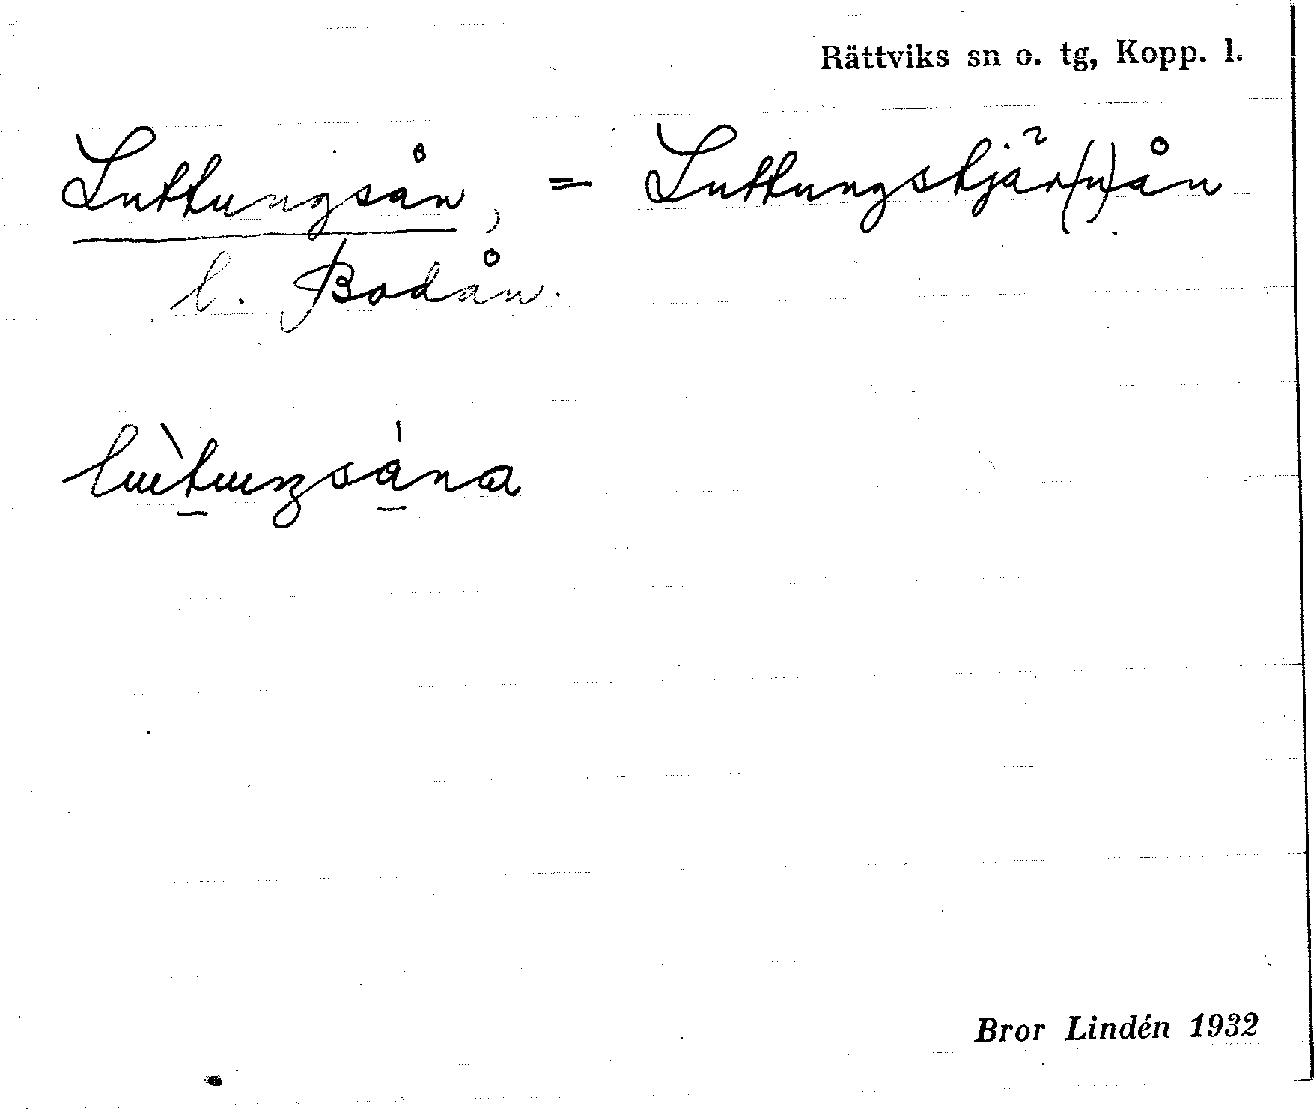 Rättviks sn o. tg, Kopp. l.
Luttungsån, = Luttungstjär(n)ån
l. Bodån.
lùtuŋsána
Bror Lindén 1932